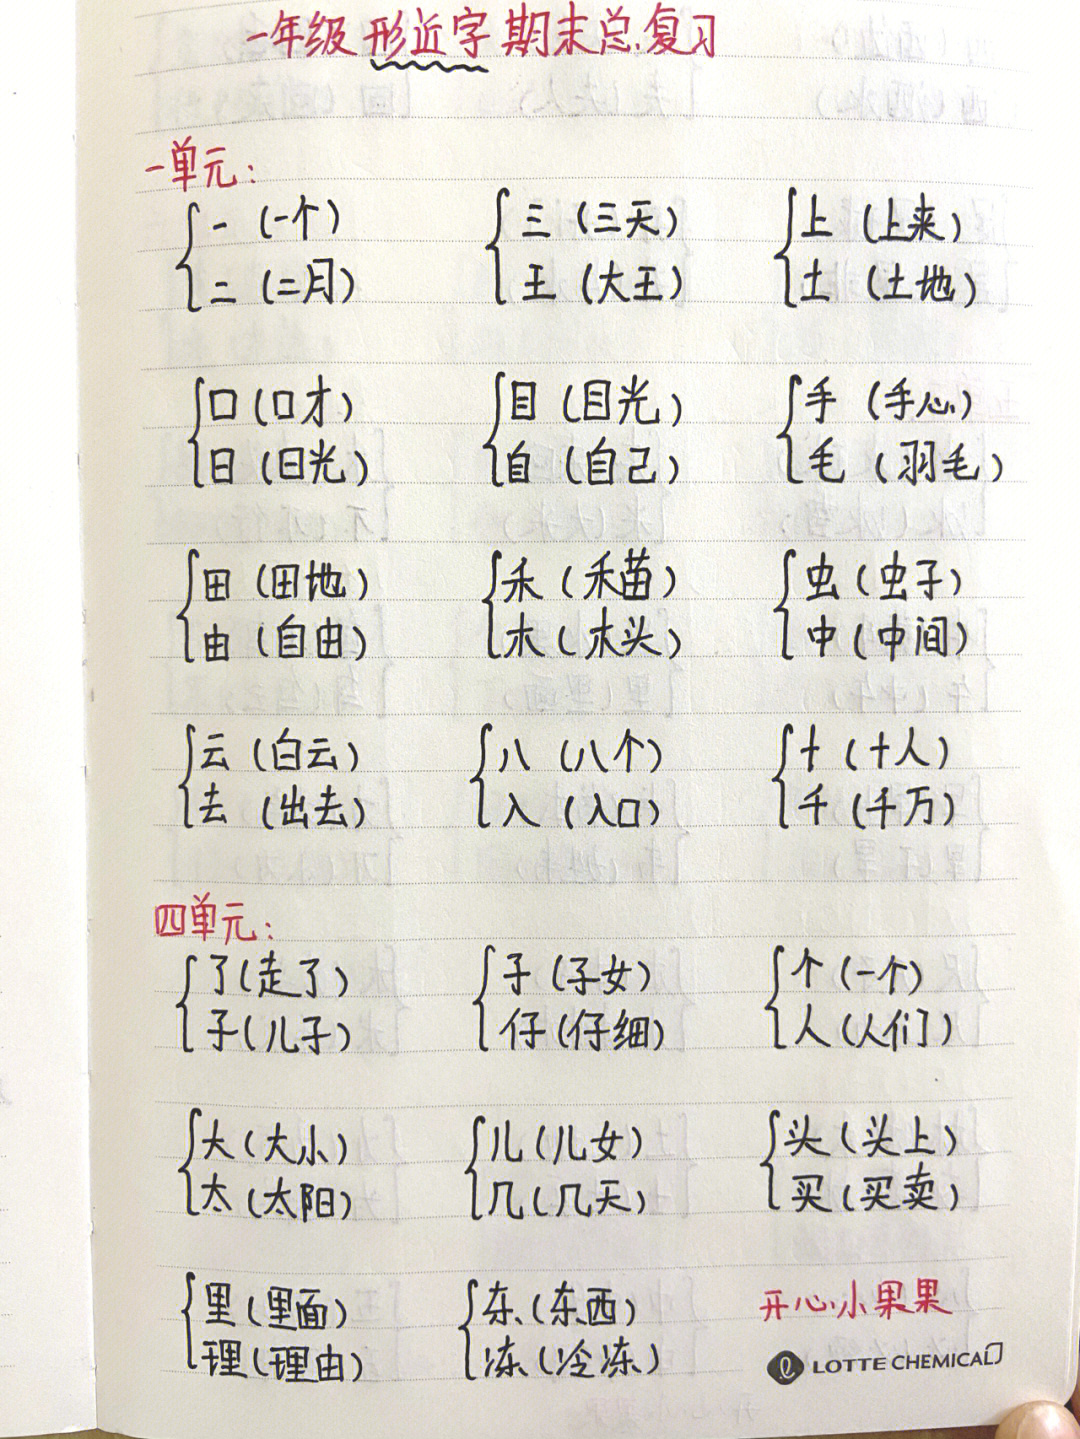 一年级形近字期末总复习
一单元:
一(一个) 三(三天) 上(上来)
二(二月) 王(大王) 土(土地)
口(口才) 目(目光) 手(手心)
日(日光) 自(自己) 毛(羽毛)
田(田地) 禾(禾苗) 虫(虫子)
由(自由) 木(木头) 中(中间)
云(白云) 八(八个) 十(十人)
去(出去) 入(入口) 千(千万)
四单元:
了(走了) 子(子女) 个(一个)
子(儿子) 仔(仔细) 人(人们)
大(大小) 儿(儿女) 头(头上)
太(太阳) 几(几天) 买(买卖)
里(里面) 东(东西) 开心小果果
理(理由) 冻(冷冻) LOTTE CHEMICAL